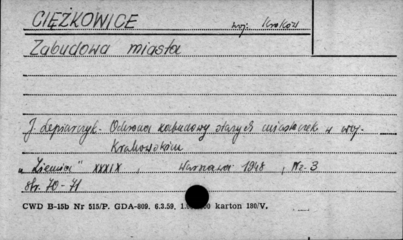 CIĘŻKOWICE woj. Kraków
Zabudowa miasta
J. Lepiarczyk - Ochrona zabudowy starych miasteczek w woj.
Krakowskim
"Ziemia" XXXIX, Warszawa 1948, Nr. 3
str. 70-71
CWD B-15b Nr 515/P. GDA-809. 6.3.59. karton 180/V.